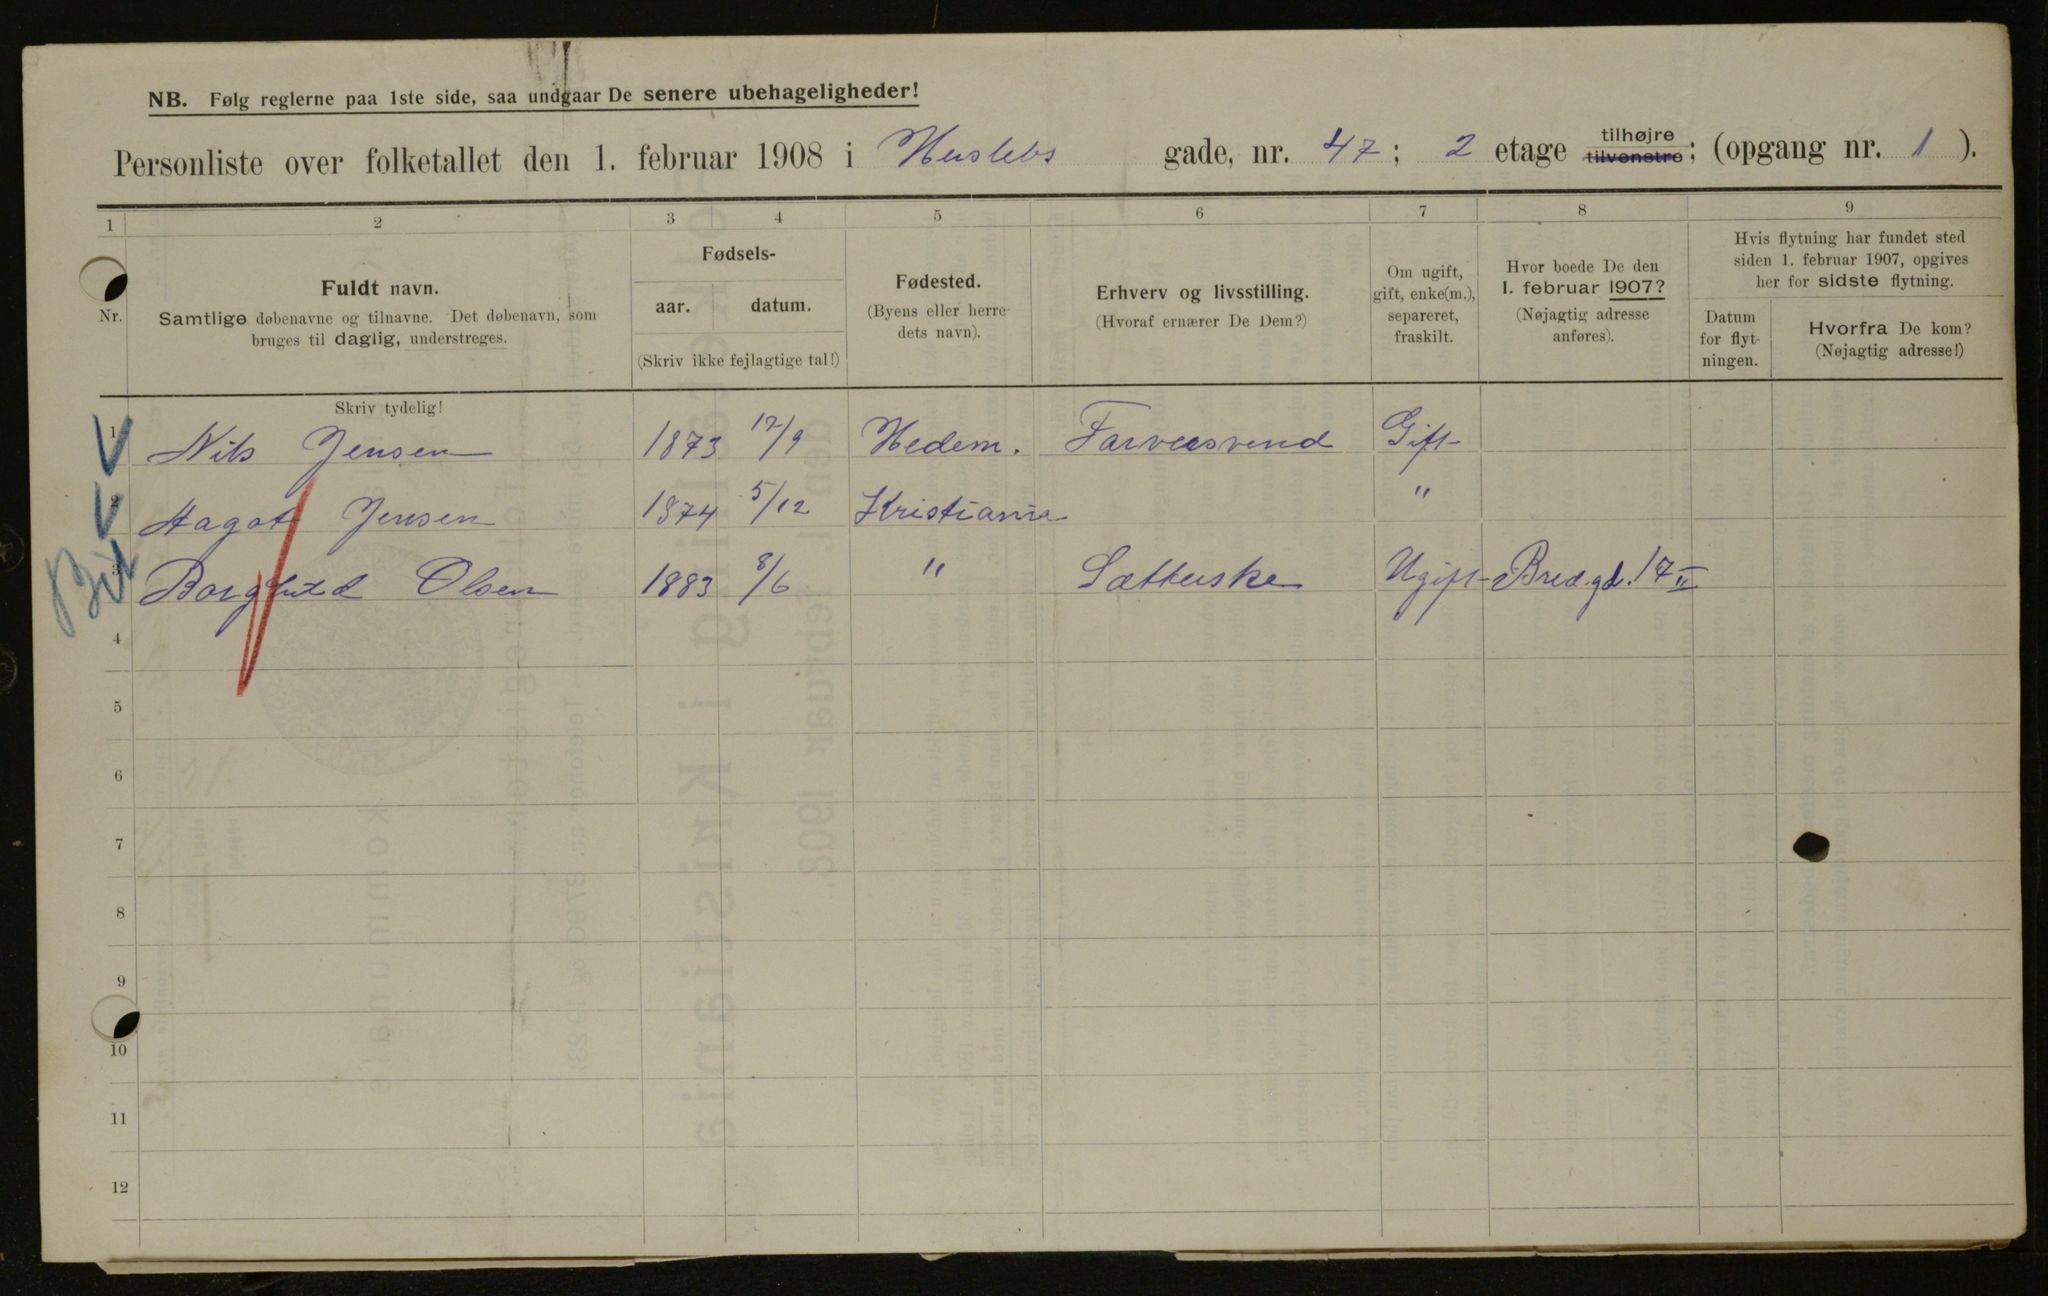 NB. Følg reglerne paa 1ste side, saa undgaar De senere ubehageligheder!
Personliste over folketallet den 1. februar 1908 i Herslebs gade, nr. 47; 2 etage tilhøjre tilvenstre; (opgang nr. 1).
1 2 3 4 5 6 7 8 9
Nr.
Fuldt navn.
Samtlige døbenavne og tilnavne. Det døbenavn, som
bruges til daglig, understreges.
Fødsels-
aar. datum.
(Skriv ikke fejlagtige tal!)
Fødested.
(Byens eller herre-
dets navn).
Erhverv og livsstilling.
(Hvoraf ernærer De Dem?)
Om ugift,
gift, enke(m.),
separeret,
fraskilt.
Hvor boede De den
1. februar 1907?
(Nøjagtig adresse
anføres).
Hvis flytning har fundet sted
siden 1. februar 1907, opgives
her for sidste flytning.
Datum
for flyt-
ningen.
Hvorfra De kom?
(Nøjagtig adresse!)
Skriv tydelig!
1 Nils Jensen 1873 17/9 Hedem. Farversvend Gift
2 Aagot Jensen 1874 5/12 Kristiania "
3 Borghild Olsen 1883 8/6 " Sætterske Ugift Bredgd. 17 II
4
5
6
7
8
9
10
11
12